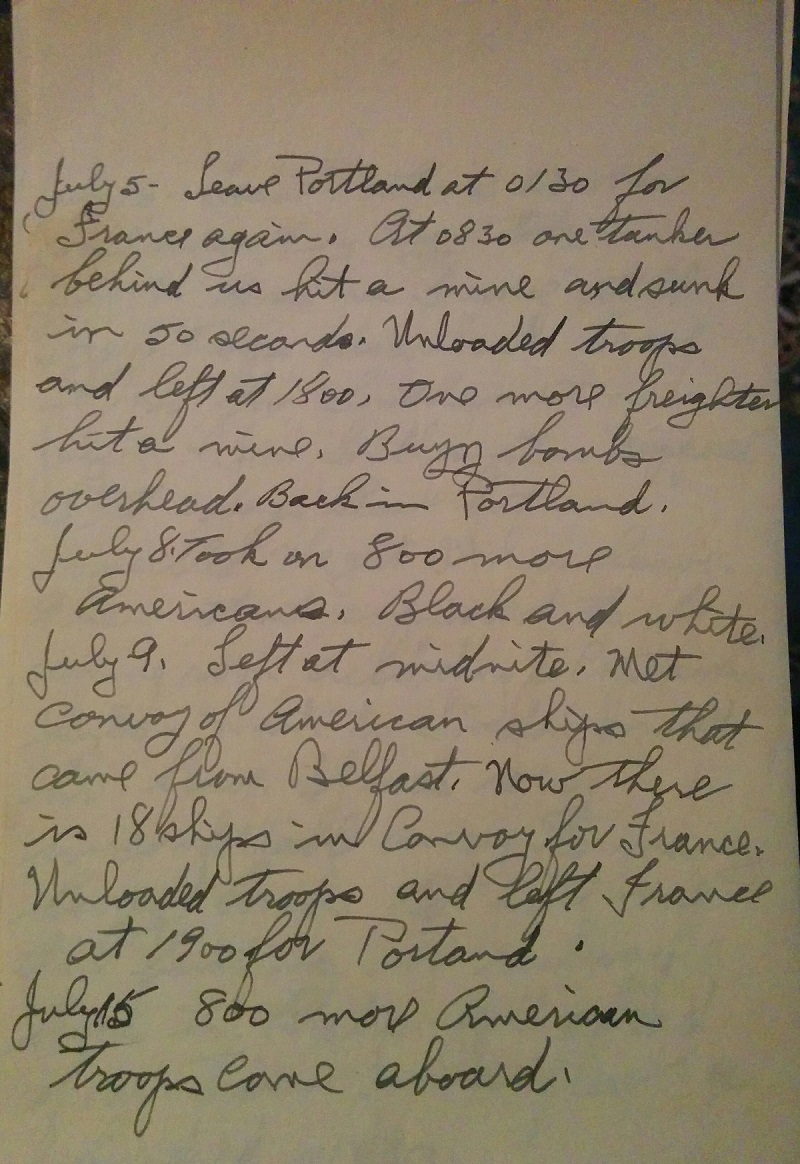 July 5- Leave Portland at 0130 for
France again. At 0830 one tanker
behind us hit a mine and sunk
in 50 seconds. Unloaded troops
and left at 1800. One more freighter
hit a mine. Buzz bombs
overhead. Back in Portland.
July 8. Took on 800 more
Americans. Black and white.
July 9. Left at midnite. Met
Convoy of American ships that
came from Belfast. Now there
is 18 ships in Convoy for France.
Unloaded troops and left France
at 1900 for Portand.
July 15 800 more American
troops come aboard.